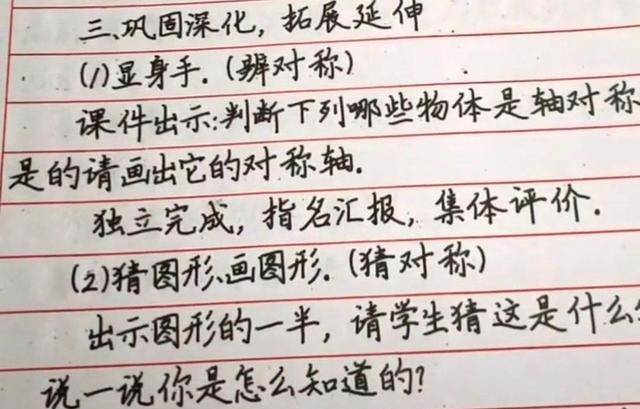 三、巩固深化，拓展延伸
(1)显身手.(辨对称)
课件出示:判断下列哪些物体是轴对称
是的请画出它的对称轴.
独立完成，指名汇报，集体评价.
(2)猜图形、画图形.(猜对称)
出示图形的一半，请学生猜这是什么
说一说你是怎么知道的?